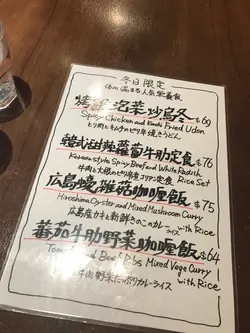 冬日限定
体の温まる人気栄養飯
泡菜炒烏冬 $69
Spicy Chicken and Kimchi Fried Udon
とり肉とキムチのピリ辛焼きうどん
韓式甜辣蘿蔔牛肋定食 $76
Korean style Spicy Beef and White Radish Rice Set
牛肉と大根のピリ辛コリアン定食
広島蠔雜菇咖喱飯 $75
Hiroshima Oyster and Mixed Mushroom Curry with Rice
広島産カキと新鮮きのこカレーライス
蕃茄牛肋野菜咖喱飯 $64
Beef Mixed Vege Curry with Rice
牛肉野菜たっぷりカレーライス